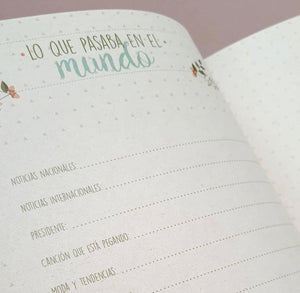 LO QUE PASABA EN EL
mundo
NOTICIAS NACIONALES:
NOTICIAS INTERNACIONALES:
PRESIDENTE:
CANCIÓN QUE ESTÁ PEGANDO:
MODA Y TENDENCIAS: